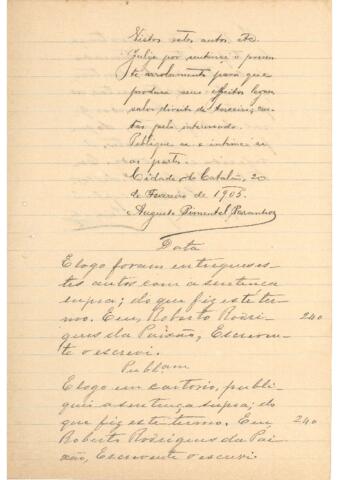 Vistos estes autos, etc.
Julgo por sentença o presen-
te arrolamento para que
produza seus effeitos legaes
salvo direito de terceiro; cus-
tas pelo interessado.
Publique se e intime se
as partes.
Cidade do Catalão, 20
de Fevereiro de 1905.
Augusto Pimentel Paranhos
Data
E logo foram entregues es-
tes autos com a sentença
supra; do que fiz este ter-
mo. Eu, Roberto Rodri- 240
gues da Paixão, Escreven-
te o escrevi.
Publcam
E logo em cartorio, publi-
quei a sentença supra; do
que fiz este termo. Eu 240
Roberto Rodrigues da Pai-
xão, Escrevente o escrevi